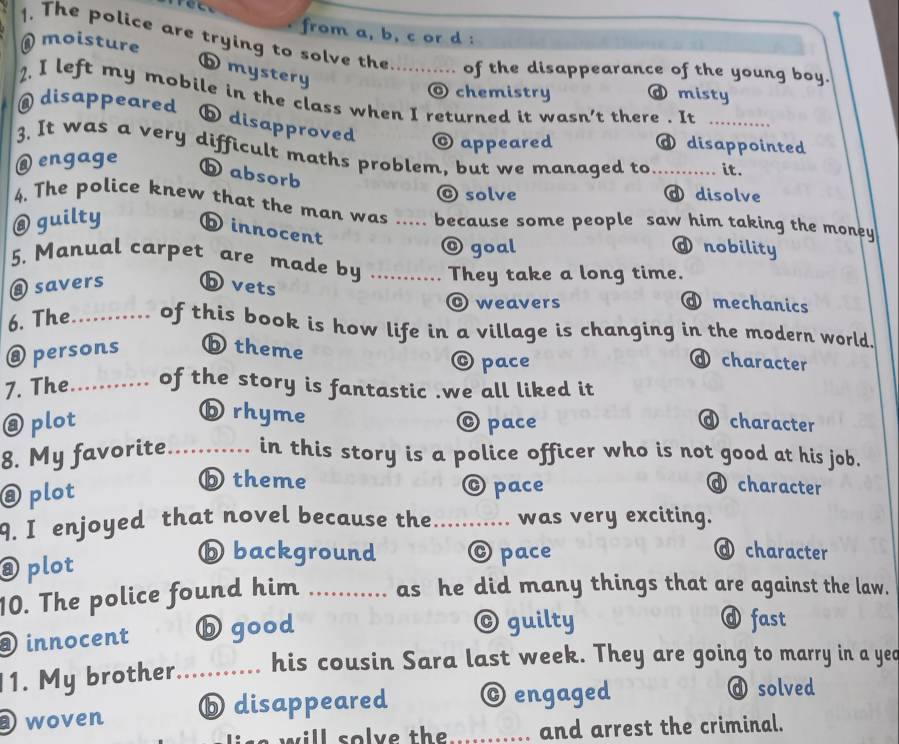 from a, b, c or d :
1. The police are trying to solve the.......... of the disappearance of the young boy.
ⓐ moisture ⓑ mystery ⓒ chemistry ⓓ misty
2. I left my mobile in the class when I returned it wasn't there . It ..........
ⓐ disappeared ⓑ disapproved ⓒ appeared ⓓ disappointed
3. It was a very difficult maths problem, but we managed to.......... it.
ⓐ engage ⓑ absorb ⓒ solve ⓓ disolve
4. The police knew that the man was ..... because some people saw him taking the money
ⓐ guilty ⓑ innocent ⓒ goal ⓓ ability
5. Manual carpet are made by .......... They take a long time.
ⓐ savers ⓑ vets ⓒ weavers ⓓ mechanics
6. The.......... of this book is how life in a village is changing in the modern world.
ⓐ persons ⓑ theme ⓒ pace ⓓ character
7. The.......... of the story is fantastic .we all liked it
ⓐ plot ⓑ rhyme ⓒ pace ⓓ character
8. My favorite.......... in this story is a police officer who is not good at his job.
ⓐ plot ⓑ theme ⓒ pace ⓓ character
9. I enjoyed that novel because the.......... was very exciting.
ⓐ plot ⓑ background ⓒ pace ⓓ character
10. The police found him .......... as he did many things that are against the law.
ⓐ innocent ⓑ good ⓒ guilty ⓓ fast
11. My brother........... his cousin Sara last week. They are going to marry in a yea
ⓐ woven ⓑ disappeared ⓒ engaged ⓓ solved
will solve the.......... and arrest the criminal.